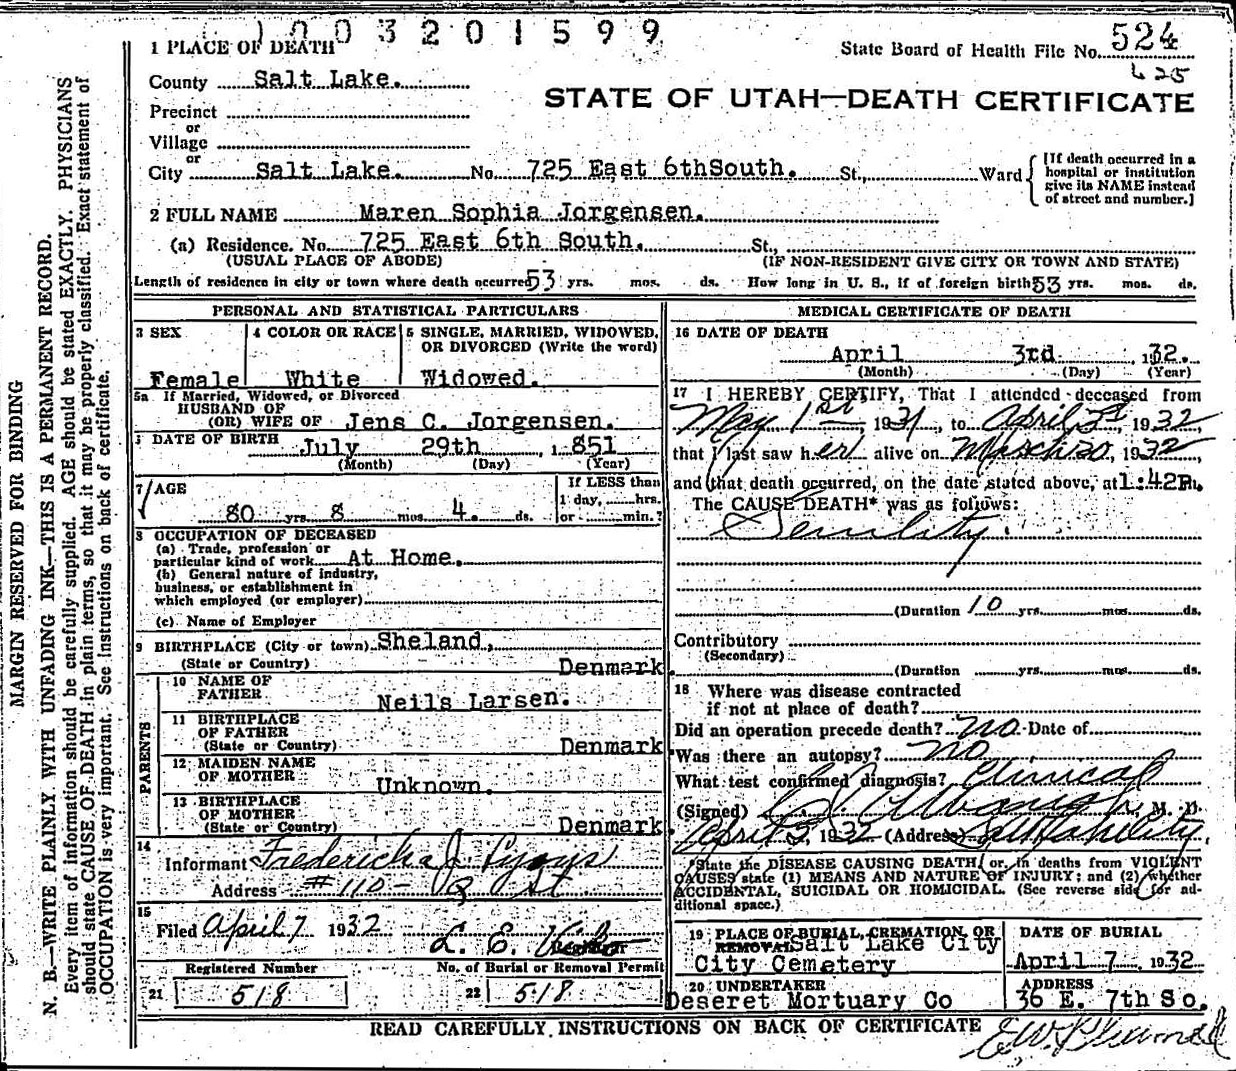 1003201599
1 PLACE OF DEATH
State Board of Health File No. 524
625
County Salt Lake.
STATE OF UTAH—DEATH CERTIFICATE
Precinct
or
Village
or
City Salt Lake. No. 725 East 6thSouth. St., Ward
[If death occurred in a
hospital or institution
give its NAME instead
of street and number.]
2 FULL NAME Maren Sophia Jorgensen.
(a) Residence. No. 725 East 6th South. St.,
(USUAL PLACE OF ABODE) (IF NON-RESIDENT GIVE CITY OR TOWN AND STATE)
Length of residence in city or town where death occurred 53 yrs. mos. ds. How long in U. S., if of foreign birth 53 yrs. mos. ds.
PERSONAL AND STATISTICAL PARTICULARS
3 SEX
Female
4 COLOR OR RACE
White
5 SINGLE, MARRIED, WIDOWED,
OR DIVORCED (Write the word)
Widowed.
5a If Married, Widowed, or Divorced
HUSBAND OF
(OR) WIFE OF Jens C. Jorgensen.
DATE OF BIRTH
July 29th , 1 851
(Month) (Day) (Year)
7 AGE
80 yrs 8 mos 4. ds.
If LESS than
1 day, hrs.
or min.?
8 OCCUPATION OF DECEASED
(a) Trade, profession or
particular kind of work At Home.
(b) General nature of industry,
business, or establishment in
which employed (or employer)
(c) Name of Employer
9 BIRTHPLACE (City or town) Sheland,
(State or Country) Denmark.
PARENTS
10 NAME OF
FATHER Neils Larsen.
11 BIRTHPLACE
OF FATHER
(State or Country) Denmark.
12 MAIDEN NAME
OF MOTHER Unknown.
13 BIRTHPLACE
OF MOTHER
(State or Country) Denmark.
14
Informant Fredericka J.
Address #110- Q St
15
Filed April 7 1932
L. E.
Registrar
Registered Number
21 518
No. of Burial or Removal Permit
22 518
MEDICAL CERTIFICATE OF DEATH
16 DATE OF DEATH
April 3rd , 1932.
(Month) (Day) (Year)
17 I HEREBY CERTIFY, That I attended deceased from
May 1st, 1931, to April 3d, 1932
that I last saw her alive on March 30, 1932,
and that death occurred, on the date stated above, at 1:42P.m.
The CAUSE DEATH* was as follows:
Senility.
(Duration 10 yrs. mos. ds.
Contributory
(Secondary)
(Duration yrs. mos. ds.
18 Where was disease contracted
if not at place of death?
Did an operation precede death? no. Date of
Was there an autopsy? no
What test confirmed diagnosis? Clinical
(Signed) M. D.
April 5, 1932 (Address) Salt Lake City.
*State the DISEASE CAUSING DEATH, or, in deaths from VIOLENT
CAUSES state (1) MEANS AND NATURE OF INJURY; and (2) whether
ACCIDENTAL, SUICIDAL OR HOMICIDAL. (See reverse side for ad-
ditional space.)
19 PLACE OF BURIAL, CREMATION, OR
REMOVAL Salt Lake City
City Cemetery
DATE OF BURIAL
April 7 , 1932
20 UNDERTAKER
Deseret Mortuary Co
ADDRESS
36 E. 7th So.
READ CAREFULLY INSTRUCTIONS ON BACK OF CERTIFICATE
MARGIN RESERVED FOR BINDING
N. B.—WRITE PLAINLY WITH UNFADING INK—THIS IS A PERMANENT RECORD.
Every item of information should be carefully supplied. AGE should be stated EXACTLY. PHYSICIANS
should state CAUSE OF DEATH in plain terms, so that it may be properly classified. Exact statement of
OCCUPATION is very important. See instructions on back of certificate.